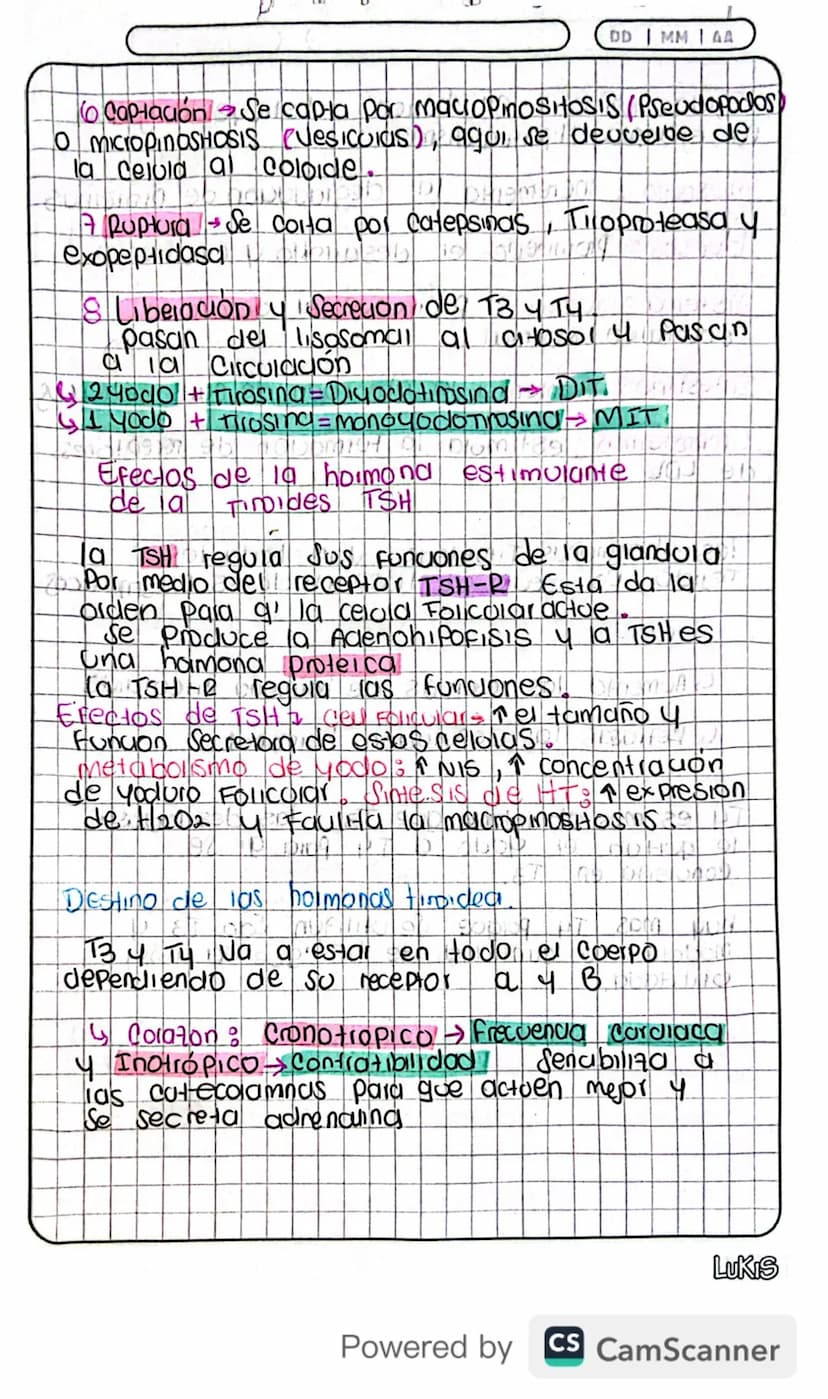 DD | MM | AA
6 Captación → Se capta por macropinositosis (Pseudopodos)
o micropinositosis (vesiculas), aqui se devuelve de
la celula al coloide.
7 Ruptura → Se corta por Catepsinas, Tiroproteasa y
exopeptidasa
8 Liberación y Secrecion de T3 y T4.
pasan del lisosomal al citosol y Pasan
a la Circulación
↳ 2 yodo + Tirosina = Diyodotirosina → DIT.
↳ 1 yodo + Tirosina = monoyodotirosina → MIT.
Efectos de la hormona estimulante
de la Tiroides TSH
la TSH regula sus funciones de la glandula
Por medio del receptor TSH-R Esta da la
orden para q' la celula Folicolar actue.
Se Produce la Adenohipofisis y la TSH es
una hormona proteica
la TSH-R regula las funciones.
Efectos de TSH↓ celu Folicular → ↑ el tamaño y
funcion secretora de estas celolas.
metabolismo de yodo: ↑ NIS, ↑ concentración
de yoduro Folicolar. Sintesis de HT: ↑ expresion
de H2O2 y Faulita la macropinositosis.
Destino de las hormonas tiroidea.
T3 y T4 va a estar en todo el Coerpo
dependiendo de su receptor a y B
↳ Corazon: Cronotropico → Frecuencia cardiaca
y Inotrópico → Contratibilidad Sensibiliza a
las catecolaminas para que actuen mejor y
se secreta adrenalina
LuKiS
Powered by CS CamScanner